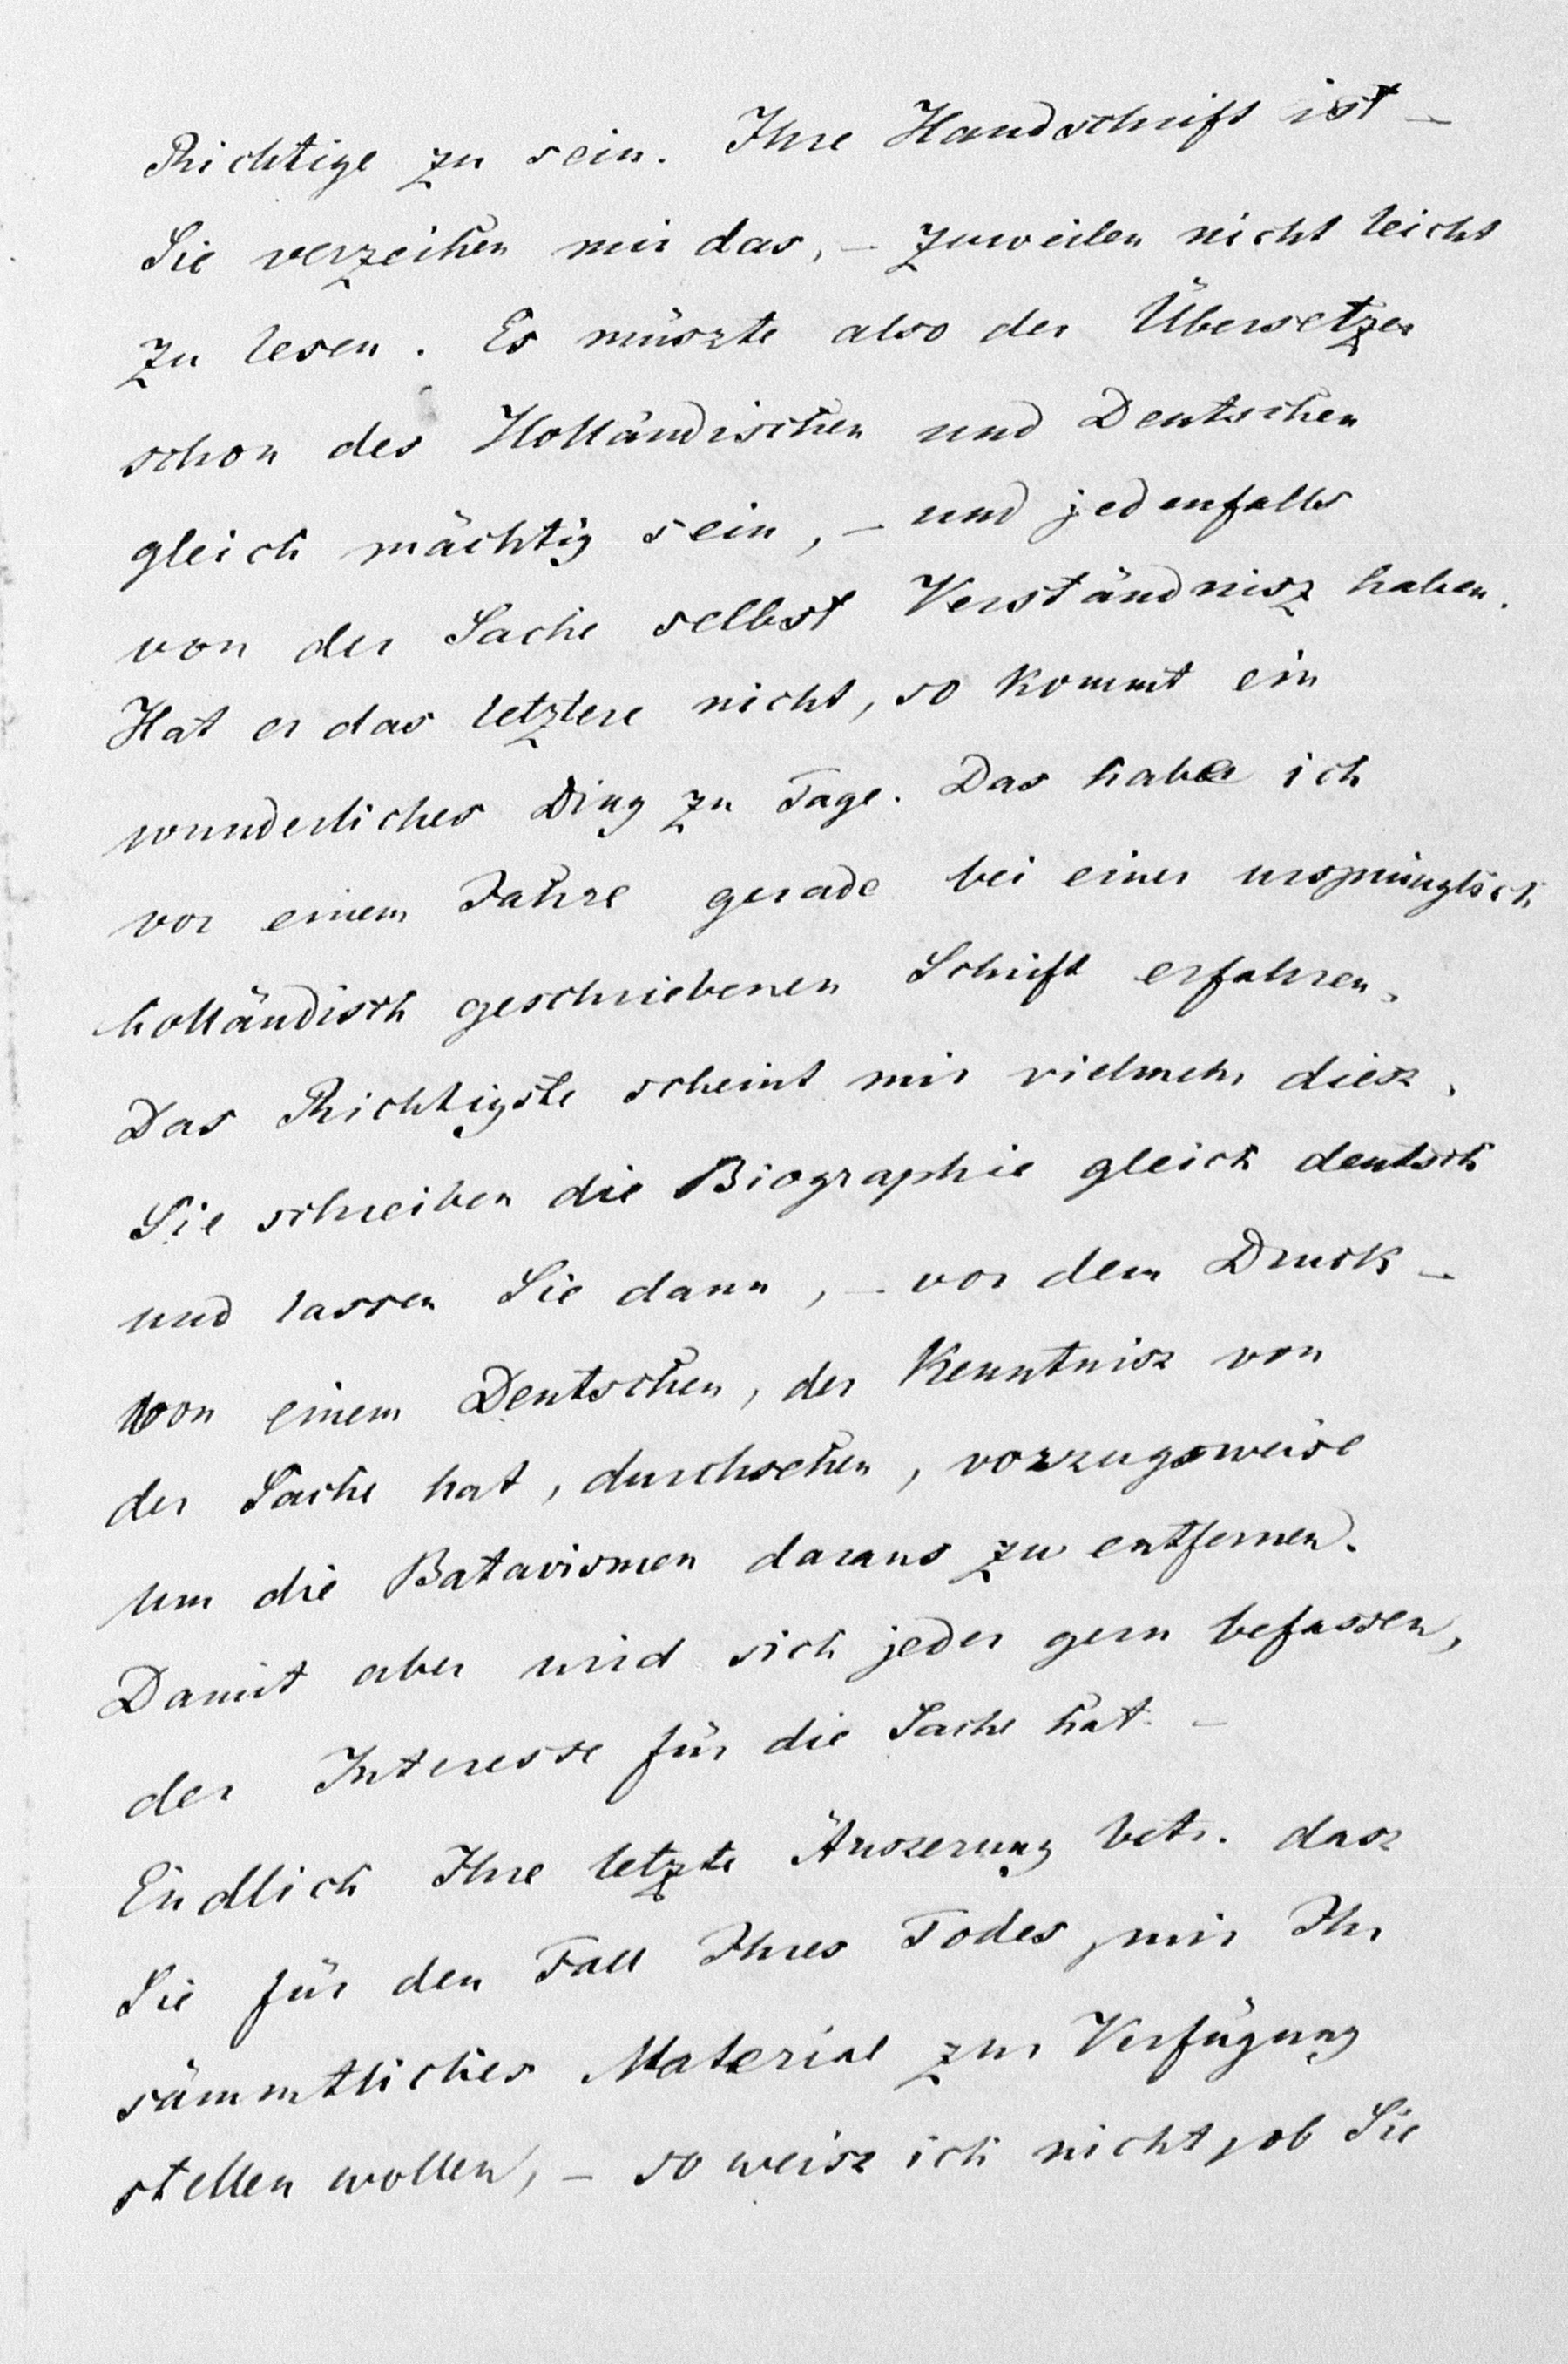 Richtige zu sein. Ihre Handschrift ist –
Sie verzeihen mir das, – zuweilen nicht leicht
zu lesen. Es müszte also der Übersetzer
schon des Holländischen und Deutschen
gleich mächtig sein, – und jedenfalls
von der Sache selbst Verständnisz haben.
Hat er das letztere nicht, so kommt ein
wunderliches Ding zu Tage. Das habe ich
vor einem Jahre gerade bei einer ursprünglich
holländisch geschriebenen Schrift erfahren.
Das Richtigste scheint mir vielmehr diesz.
Sie schreiben die Biographie gleich deutsch
und lassen Sie dann, – vor dem Druck –
von einem Deutschen, der Kenntnisz von
der Sache hat, durchsehen, vorzugsweise
um die Batavismen daraus zu entfernen.
Damit aber wird sich jeder gern befassen,
der Interesse für die Sache hat. –
Endlich Ihre letzte Äuszerung betr. dasz
Sie für den Fall Ihres Todes, mir Ihr
sämmtliches Material zur Verfügung
stellen wollen, – so weisz ich nicht, ob Sie